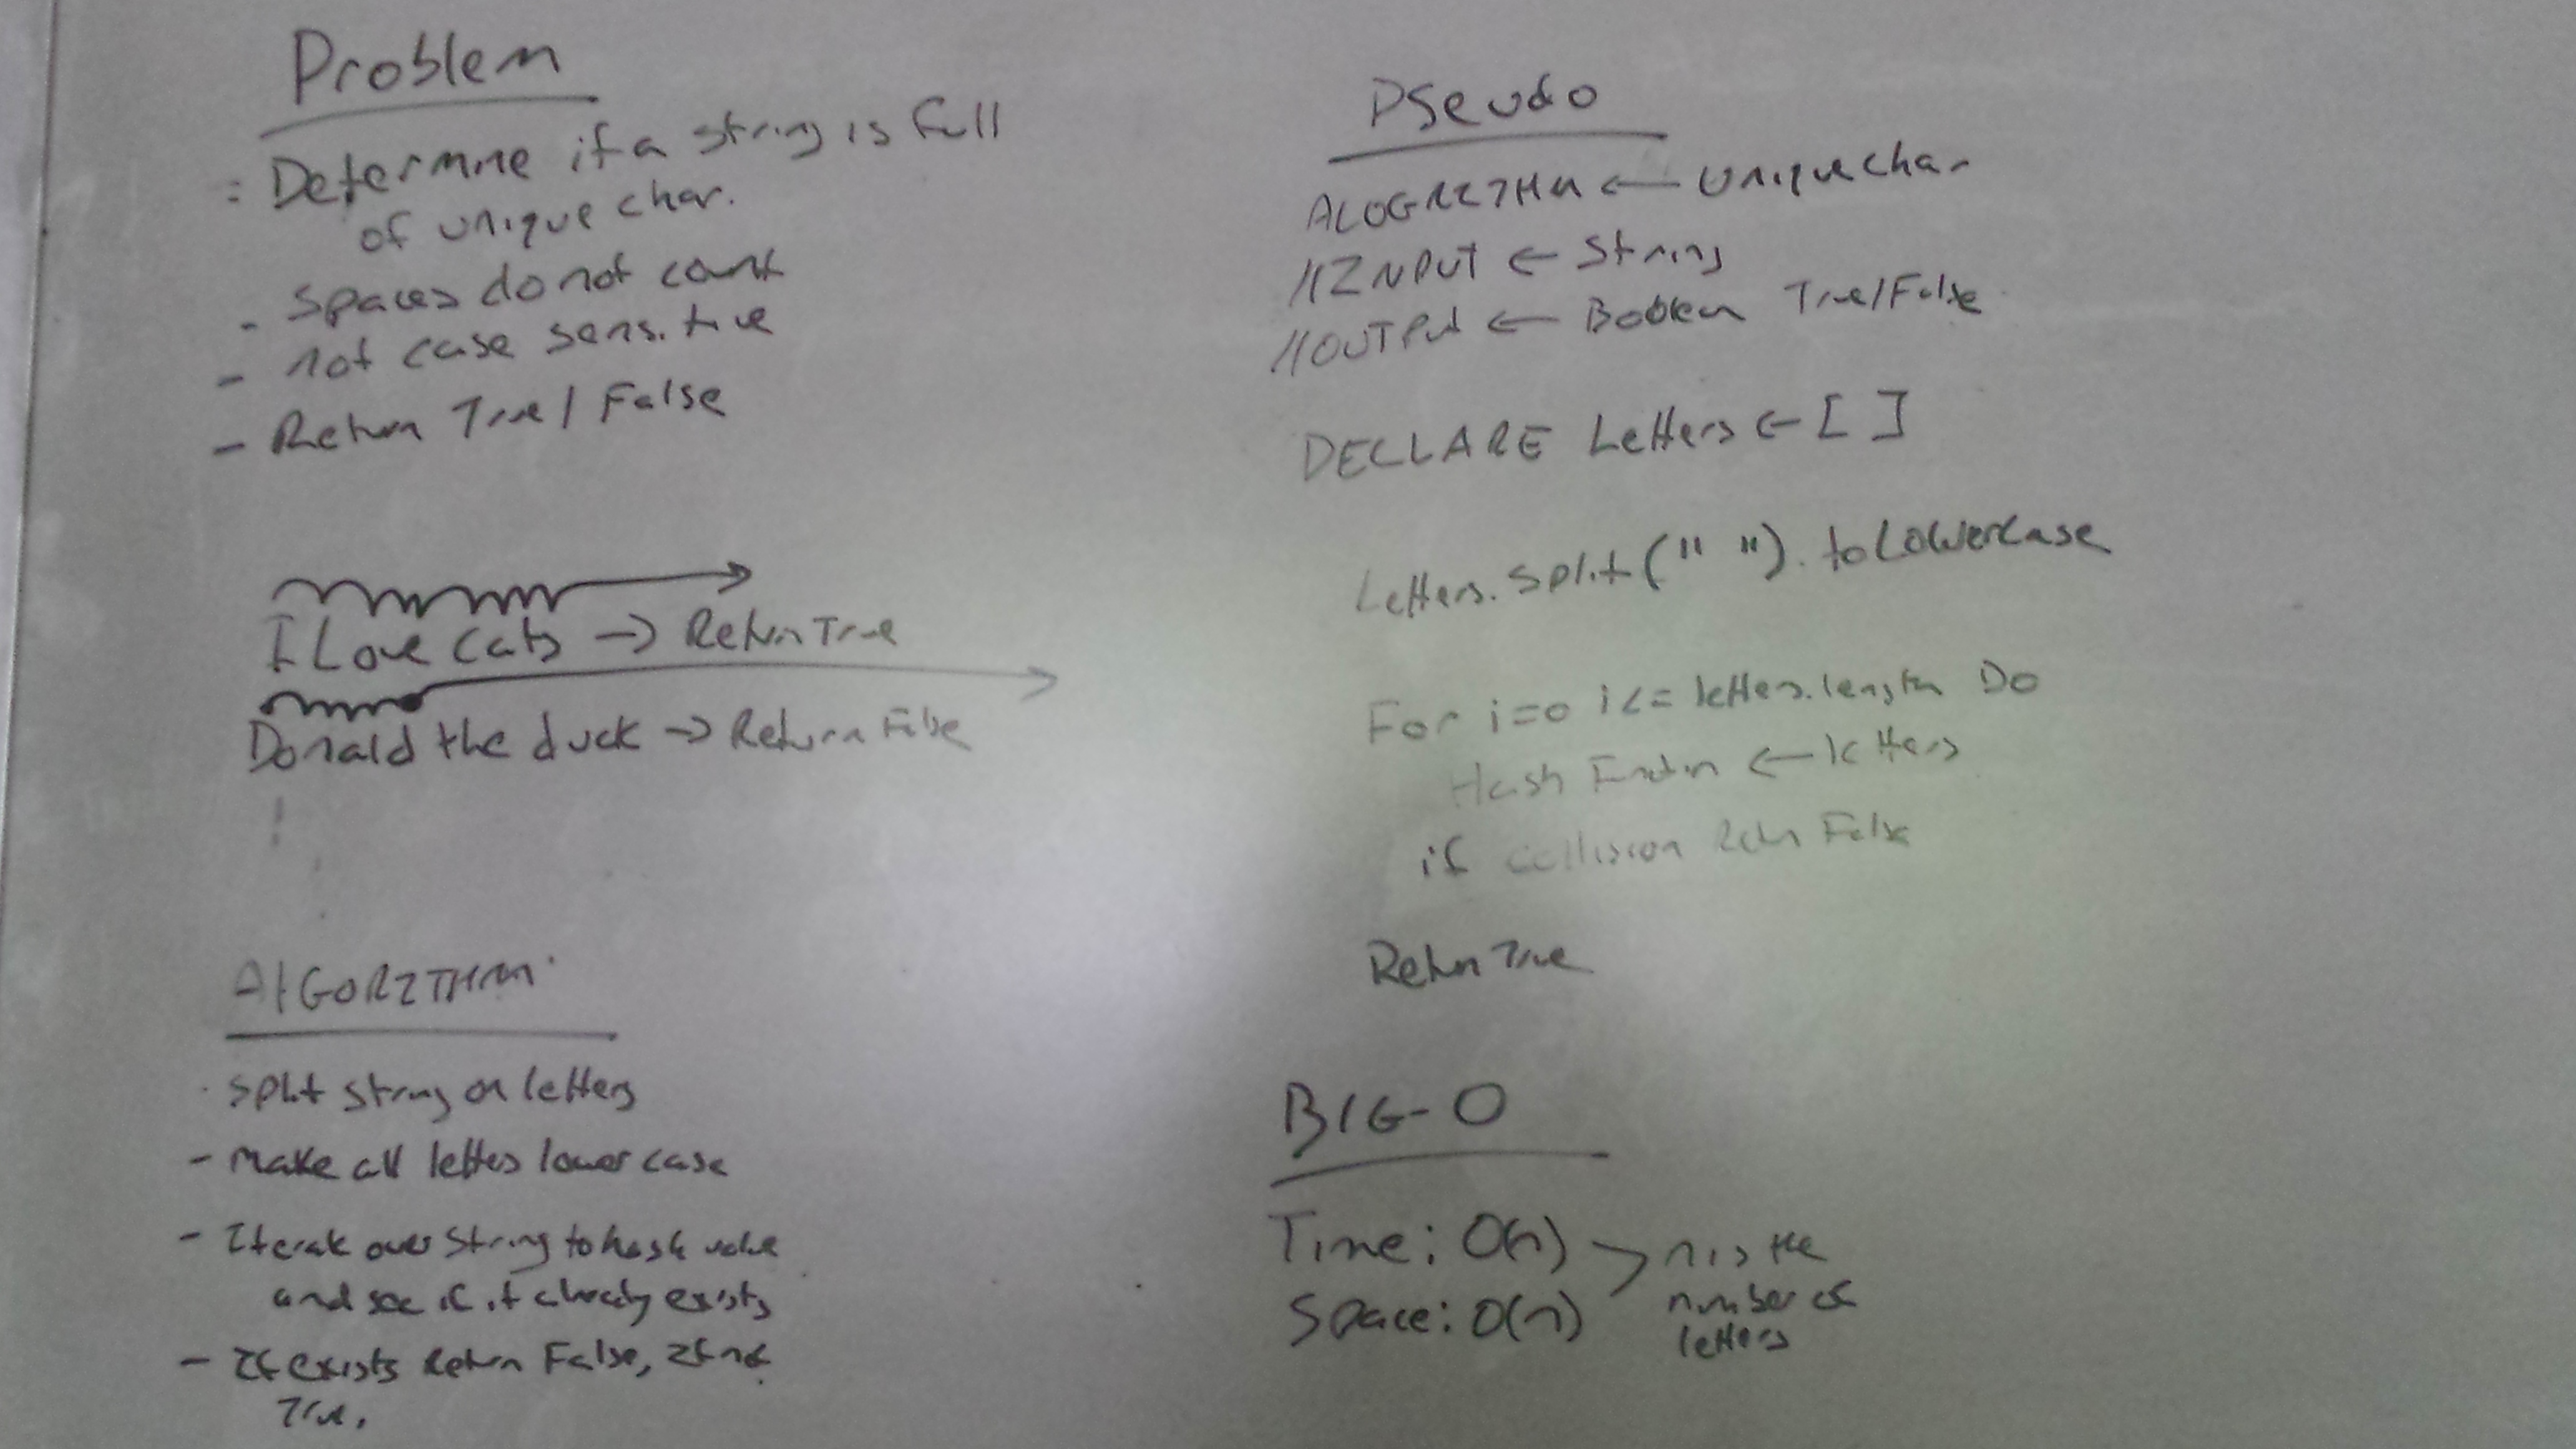 Problem
- Determine if a string is full
of unique char.
- Spaces do not count
- not case sensitive
- Return True / False
I Love Cats -> Return True
Donald the duck -> Return False
AlGORITHM
- split string on letters
- Make all letters lower case
- Iterate over string to hash value
and see if it already exists
- If exists Return False, If not
True.
Pseudo
ALOGRITHM <- Unique char
//INPUT <- String
//OUTPUT <- Boolean True/False
DECLARE Letters <- [ ]
Letters.split(" ").toLowerCase
For i=0 i<= letters.length Do
Hash Function <- letters
if collision Return False
Return True
BIG-O
Time: O(n) > n is the
number of
Space: O(n)
letters